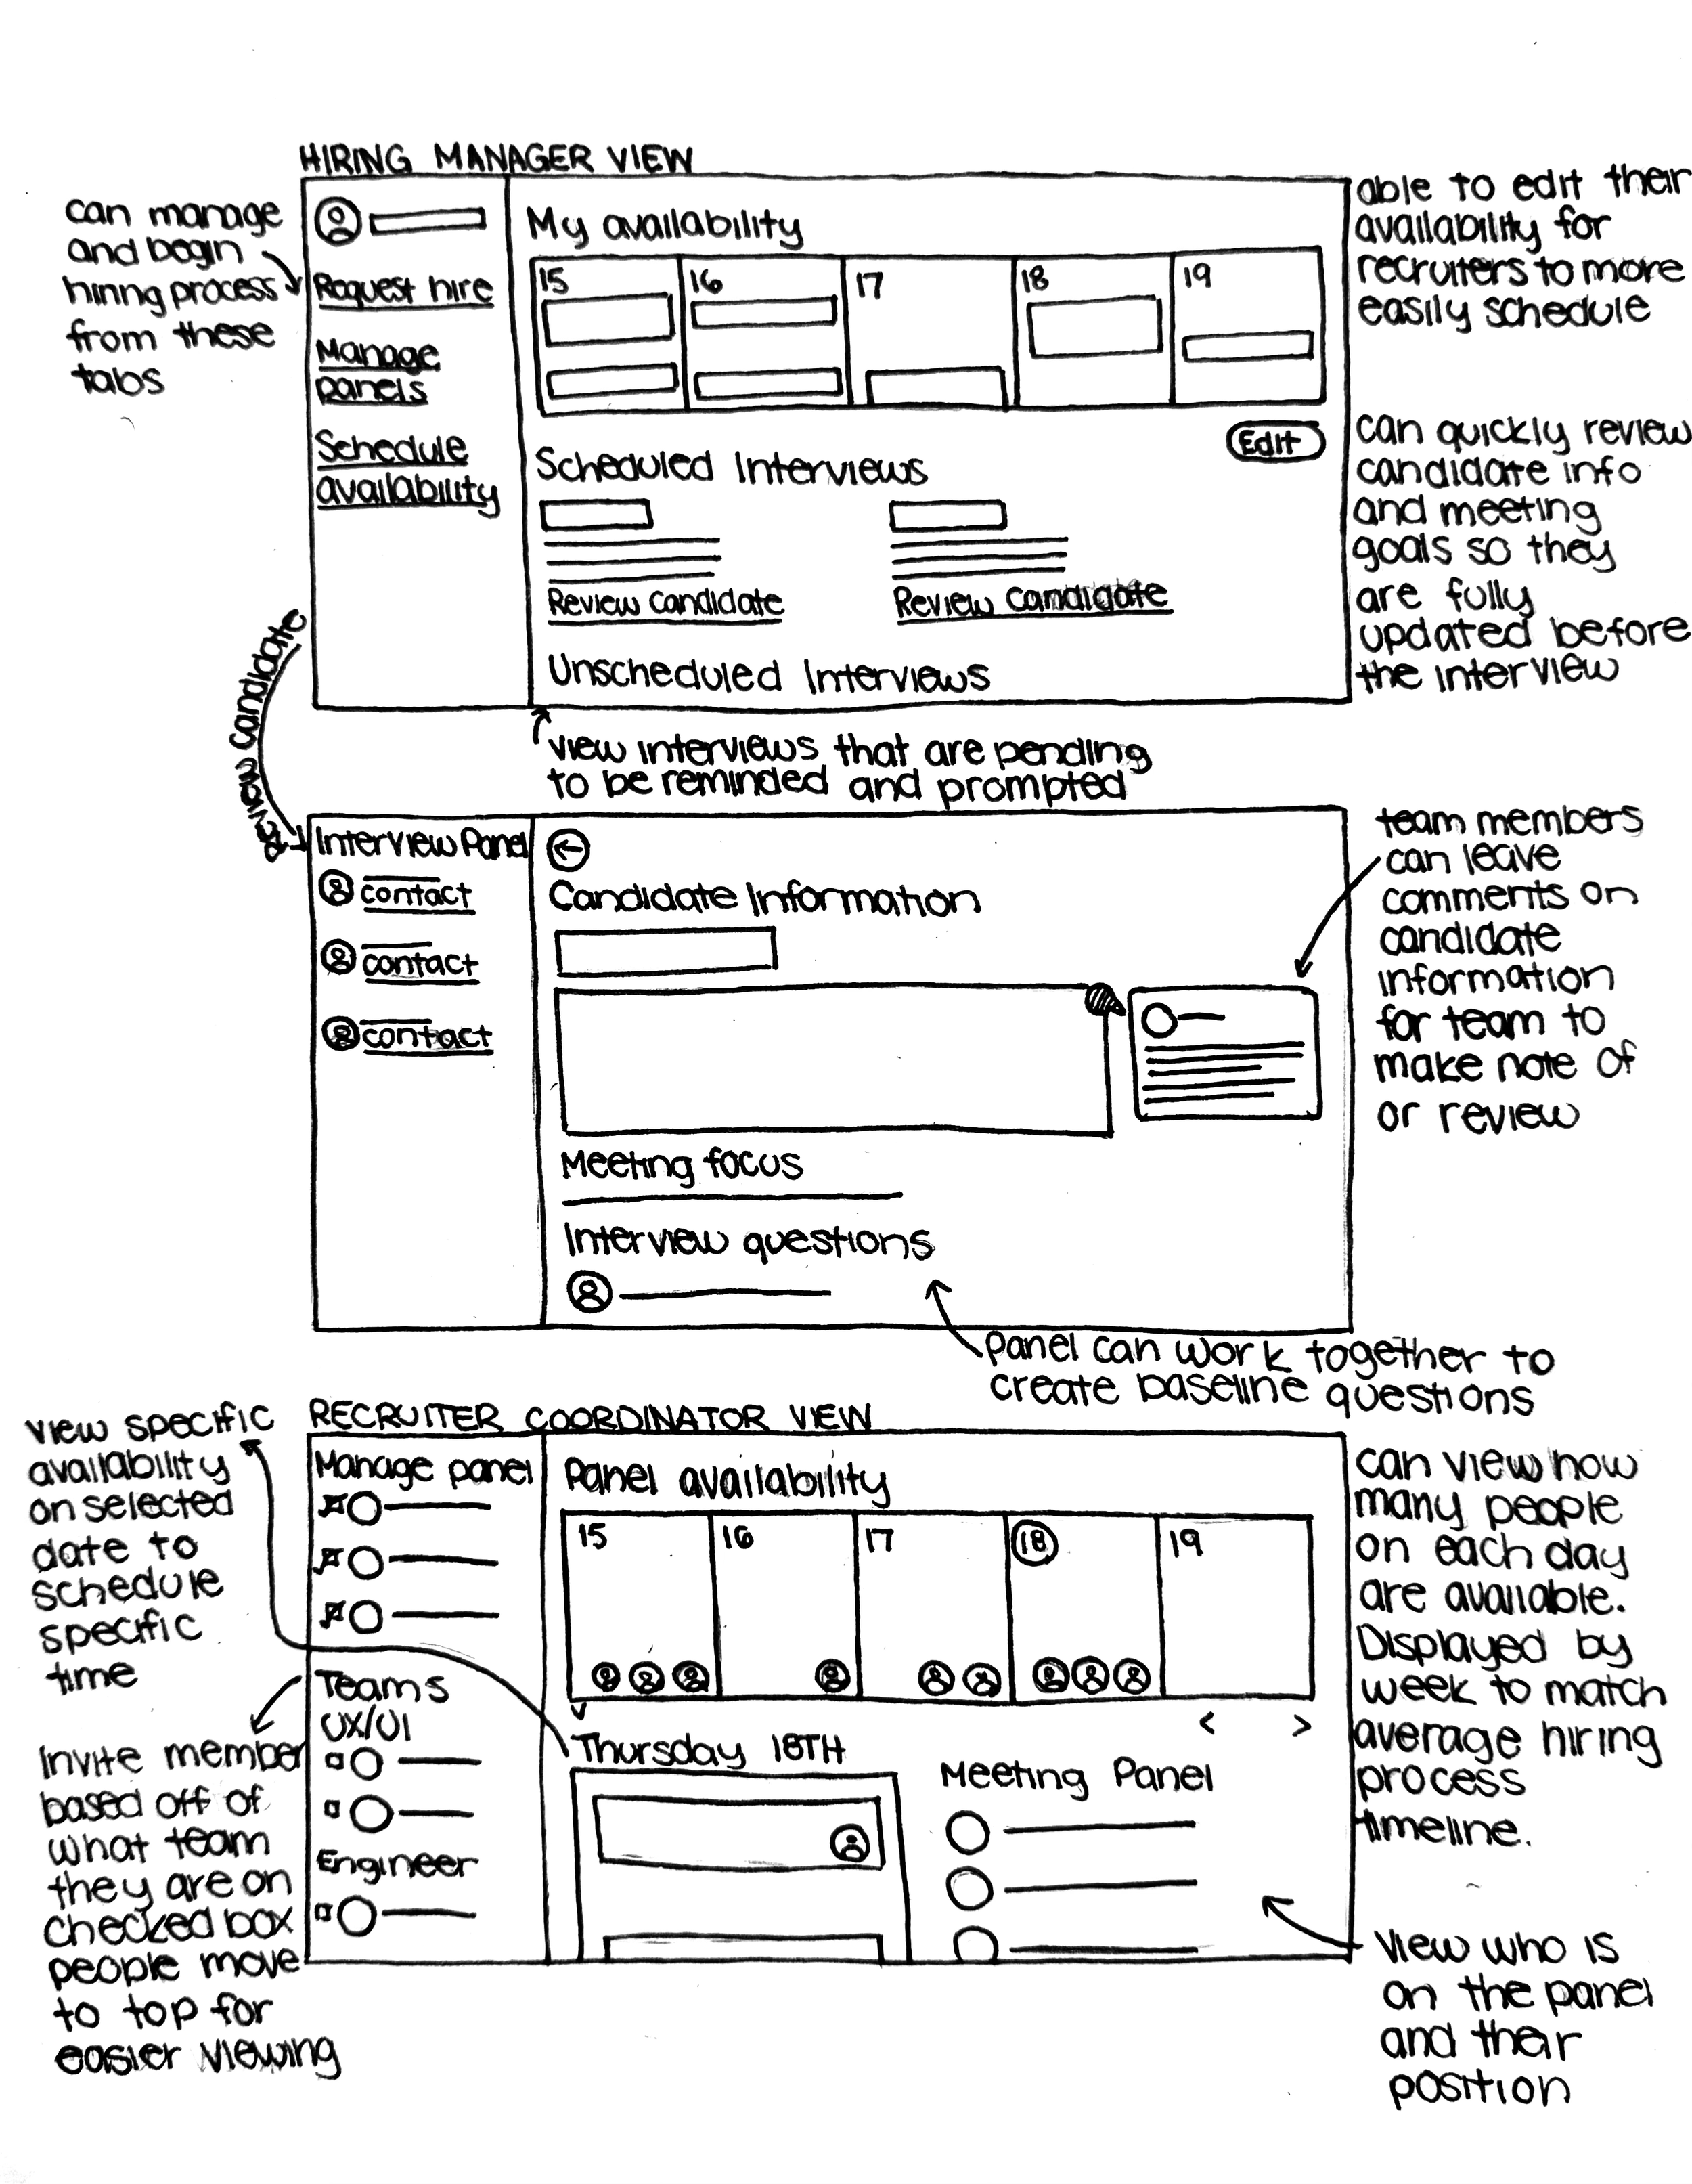 HIRING MANAGER VIEW
can manage
and begin
hiring process
from these
tabs
Request hire
Manage
panels
Schedule
availability
My availability
15 16 17 18 19
Edit
Scheduled Interviews
Review Candidate
Review Candidate
Unscheduled Interviews
able to edit their
availability for
recruiters to more
easily schedule
can quickly review
candidate info
and meeting
goals so they
are fully
updated before
the interview
view interviews that are pending
to be reminded and prompted
Review candidate
Interview Panel
contact
contact
contact
Candidate Information
Meeting focus
Interview questions
team members
can leave
comments on
candidate
information
for team to
make note of
or review
Panel can work together to
create baseline questions
RECRUITER COORDINATOR VIEW
view specific
availability
on selected
date to
schedule
specific
time
Invite member
based off of
what team
they are on
checked box
people move
to top for
easier viewing
Manage panel
Teams
UX/UI
Engineer
Panel availability
15 16 17 18 19
< >
Thursday 18TH
Meeting Panel
can view how
many people
on each day
are available.
Displayed by
week to match
average hiring
process
timeline.
view who is
on the panel
and their
position